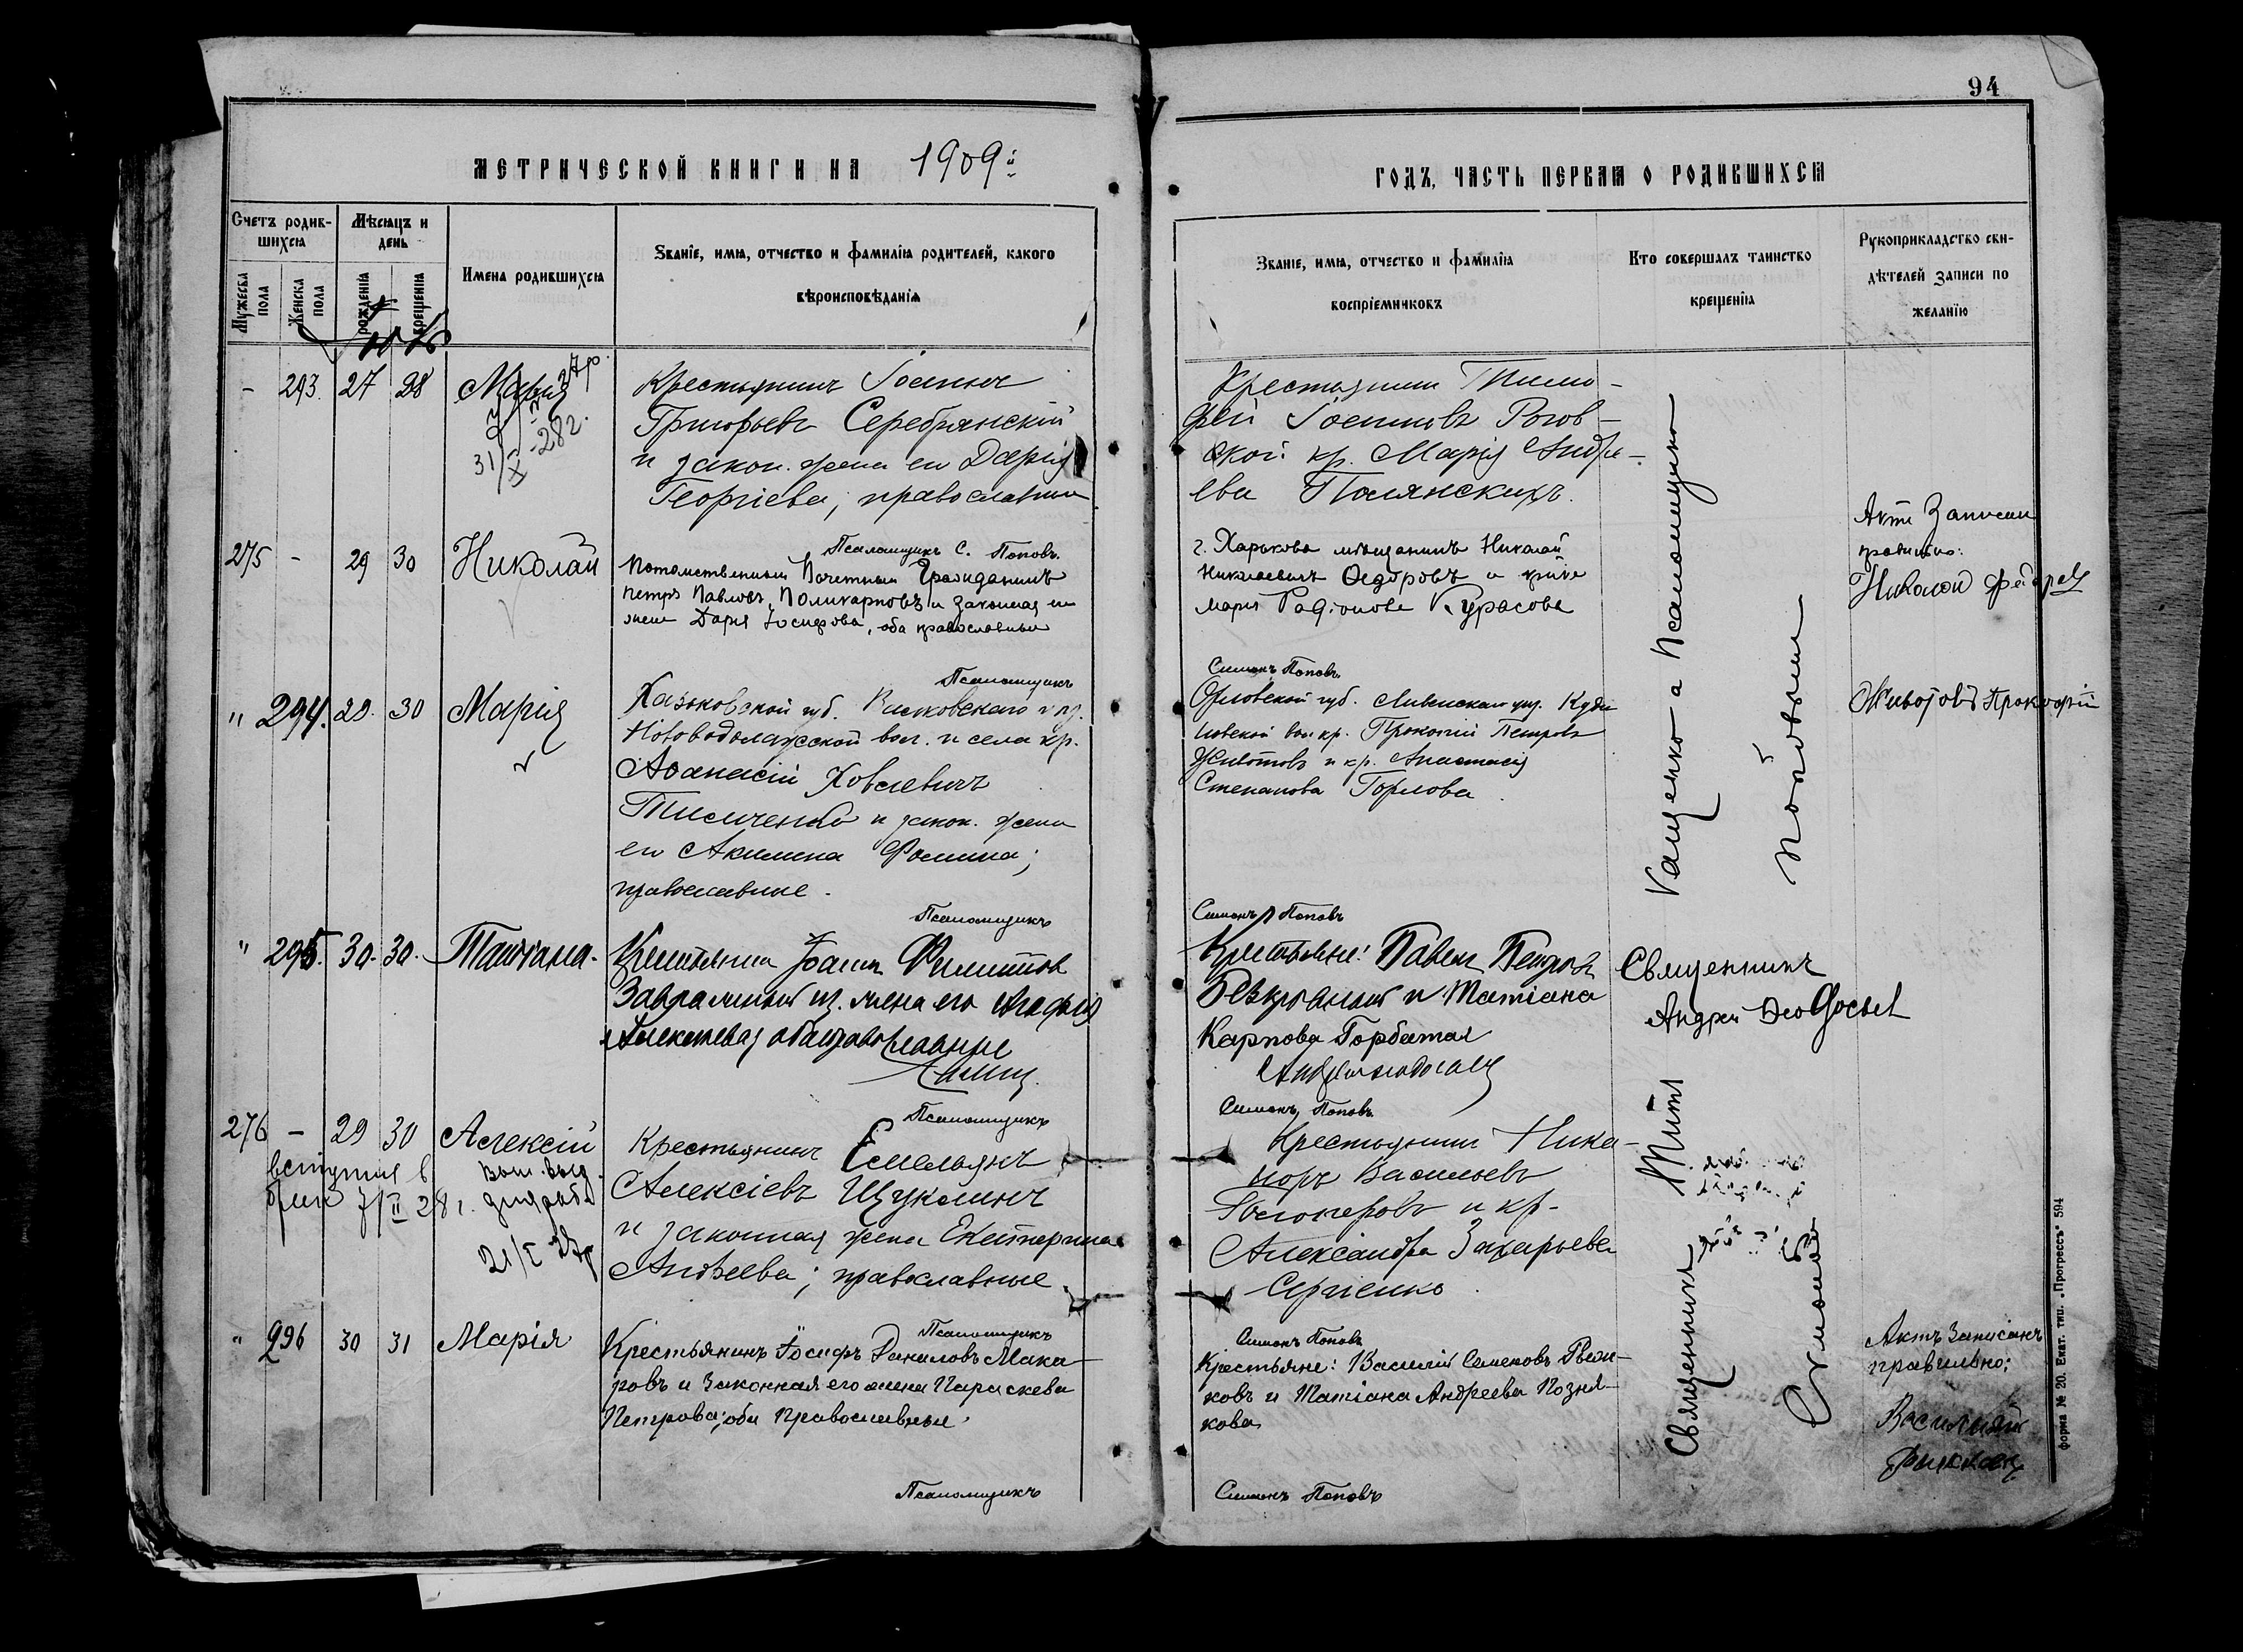 94
МЕТРИЧЕСКОЙ КНИГИ НА 1909й
ГОДЪ, ЧАСТЬ ПЕРВАЯ О РОДИВШИХСЯ
Счетъ родив-
шихся
Мужеска пола
Женска пола
Мѣсяцъ и
день
рожденія
крещенія
Имена родившихся
Званіе, имя, отчество и фамилія родителей, какого
вѣроисповѣданія
Званіе, имя, отчество и фамилія
воспріемниковъ
Кто совершалъ таинство
крещенія
Рукоприкладство сви-
дѣтелей записи по
желанію
- 293. 27 28 Марія
31/X-28г.
Крестьянинъ Іоаннъ
Григорьевъ Серебрянскій
и закон. жена его Дарія
Георгіева; православные
Крестьянинъ Тимо-
фей Іоанновъ Рогов-
ской кр. Марія Андре-
ева Полянскихъ.
Псаломщикъ С. Поповъ.
275 - 29 30 Николай
Потомственный Почетный Гражданинъ
Петръ Павловъ Поликарповъ и законная его
жена Дарія Іосифова, оба православные
г. Харькова мѣщанинъ Николай
Николаевичъ Федоровъ и
Марія Родіонова Курасова
Актъ записанъ
правильно:
Николай
Псаломщикъ
Симонъ Поповъ
" 294. 29. 30 Марія
Харьковской губ. Валковскаго уѣз.
Нововодолажской вол. и села кр.
Аѳанасій
и закон. жена
его Акилина Фомина;
православные.
Орловской губ. Ливенскаго уѣз.
вол кр. Прокопій Петровъ
Животовъ и кр. Анастасія
Степанова Горлова.
Животовъ Прокофий
Псаломщикъ
Симонъ Поповъ
" 295. 30. 30. Татіана.
Крестьянинъ Іоаннъ Филиповъ
жена его Агафія
Алексѣева, оба православные
Крестьяне: Павелъ Петровъ
и Татіана
Карпова Горбатая
Священникъ
Андрей
Псаломщикъ
Симонъ Поповъ
276 - 29 30 Алексій
вступил в
брак 7/II 28 г.
21/I
Крестьянинъ Емельянъ
Алексіевъ Щуклинъ
и законная жена Екатерина
Андреева; православные.
Крестьянинъ Ника-
норъ Васильевъ
и кр.
Александра Захарьева
Сергіенко.
Псаломщикъ
Симонъ Поповъ
" 296 30 31 Марія
Крестьянинъ Іосифъ Даниловъ Мака-
ровъ и законная его жена Параскева
Петрова; оба православные.
Крестьяне: Василій Семеновъ
ковъ и Татіана Андреева Позня-
кова
Актъ записанъ
правильно:
Василий
Псаломщикъ
Симонъ Поповъ
Священникъ Титъ Ващенко а Псаломщикъ
Симонъ Поповъ
форма № 20. Екат. тип. „Прогрессъ“ 594